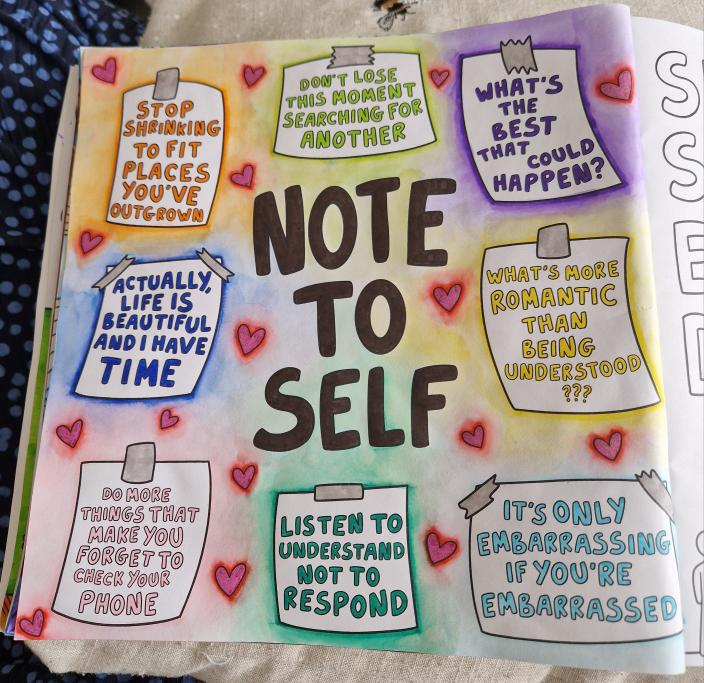 STOP
SHRINKING
TO FIT
PLACES
YOU'VE
OUTGROWN
DON'T LOSE
THIS MOMENT
SEARCHING FOR
ANOTHER
WHAT'S
THE
BEST
THAT COULD
HAPPEN?
NOTE
TO
SELF
ACTUALLY,
LIFE IS
BEAUTIFUL
AND I HAVE
TIME
WHAT'S MORE
ROMANTIC
THAN
BEING
UNDERSTOOD
???
DO MORE
THINGS THAT
MAKE YOU
FORGET TO
CHECK YOUR
PHONE
LISTEN TO
UNDERSTAND
NOT TO
RESPOND
IT'S ONLY
EMBARRASSING
IF YOU'RE
EMBARRASSED
S
S
E